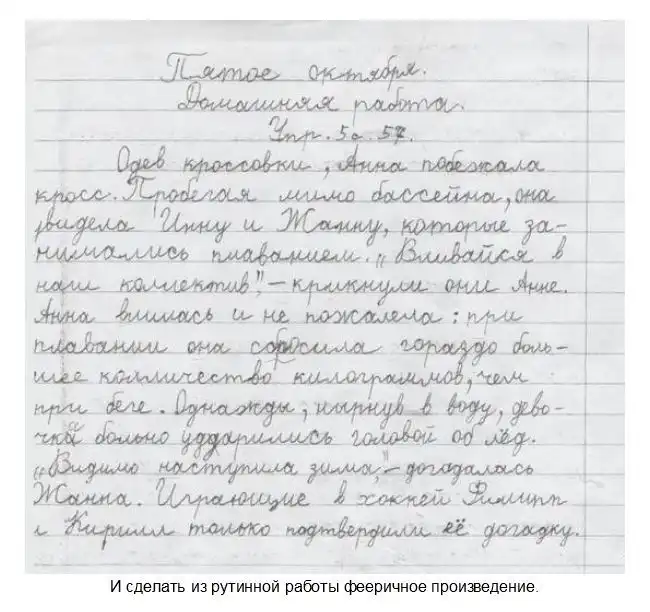 Пятое октября.
Домашняя работа.
Упр. 5а. 57.
Одев кроссовки, Анна побежала
кросс. Пробегая мимо бассейна, она
увидела Инну и Жанну, которые за-
нимались плаванием. „Вливайся в
наш коллектив", – крикнули они Анне.
Анна влилась и не пожалела: при
плавании она сбросила гораздо боль-
шее колличество килограммов, чем
при беге. Однажды, нырнув в воду, дево-
чка больно ударились головой об лёд.
„Видимо наступила зима", – догадалась
Жанна. Играющие в хоккей Филипп
и Кирилл только подтвердили её догадку.
И сделать из рутинной работы фееричное произведение.